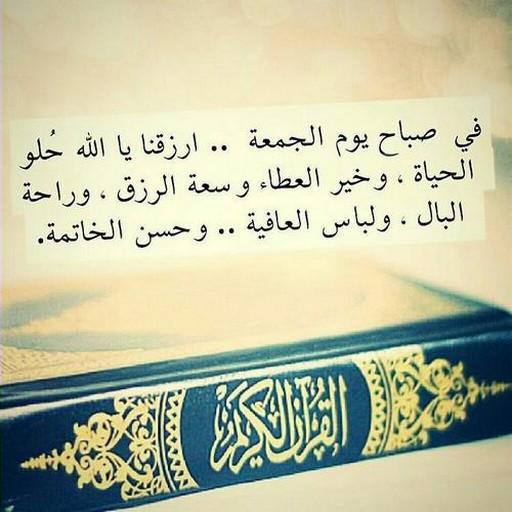 في صباح يوم الجمعة .. ارزقنا يا الله حُلو
الحياة ، وخير العطاء وسعة الرزق ، وراحة
البال ، ولباس العافية .. وحسن الخاتمة.
القرآن الكريم